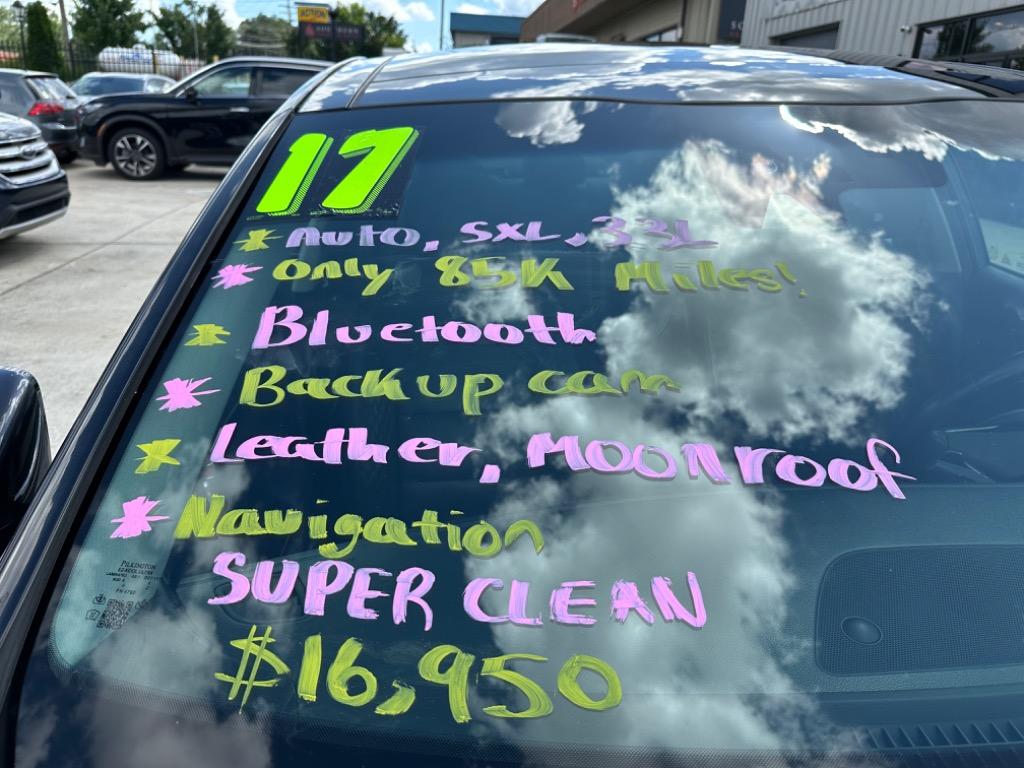 ACTION
17
Auto, SXL, 3.3L
Only 85K Miles!
Bluetooth
Backup cam
Leather, Moonroof
Navigation
SUPER CLEAN
$16,950
PILKINGTON